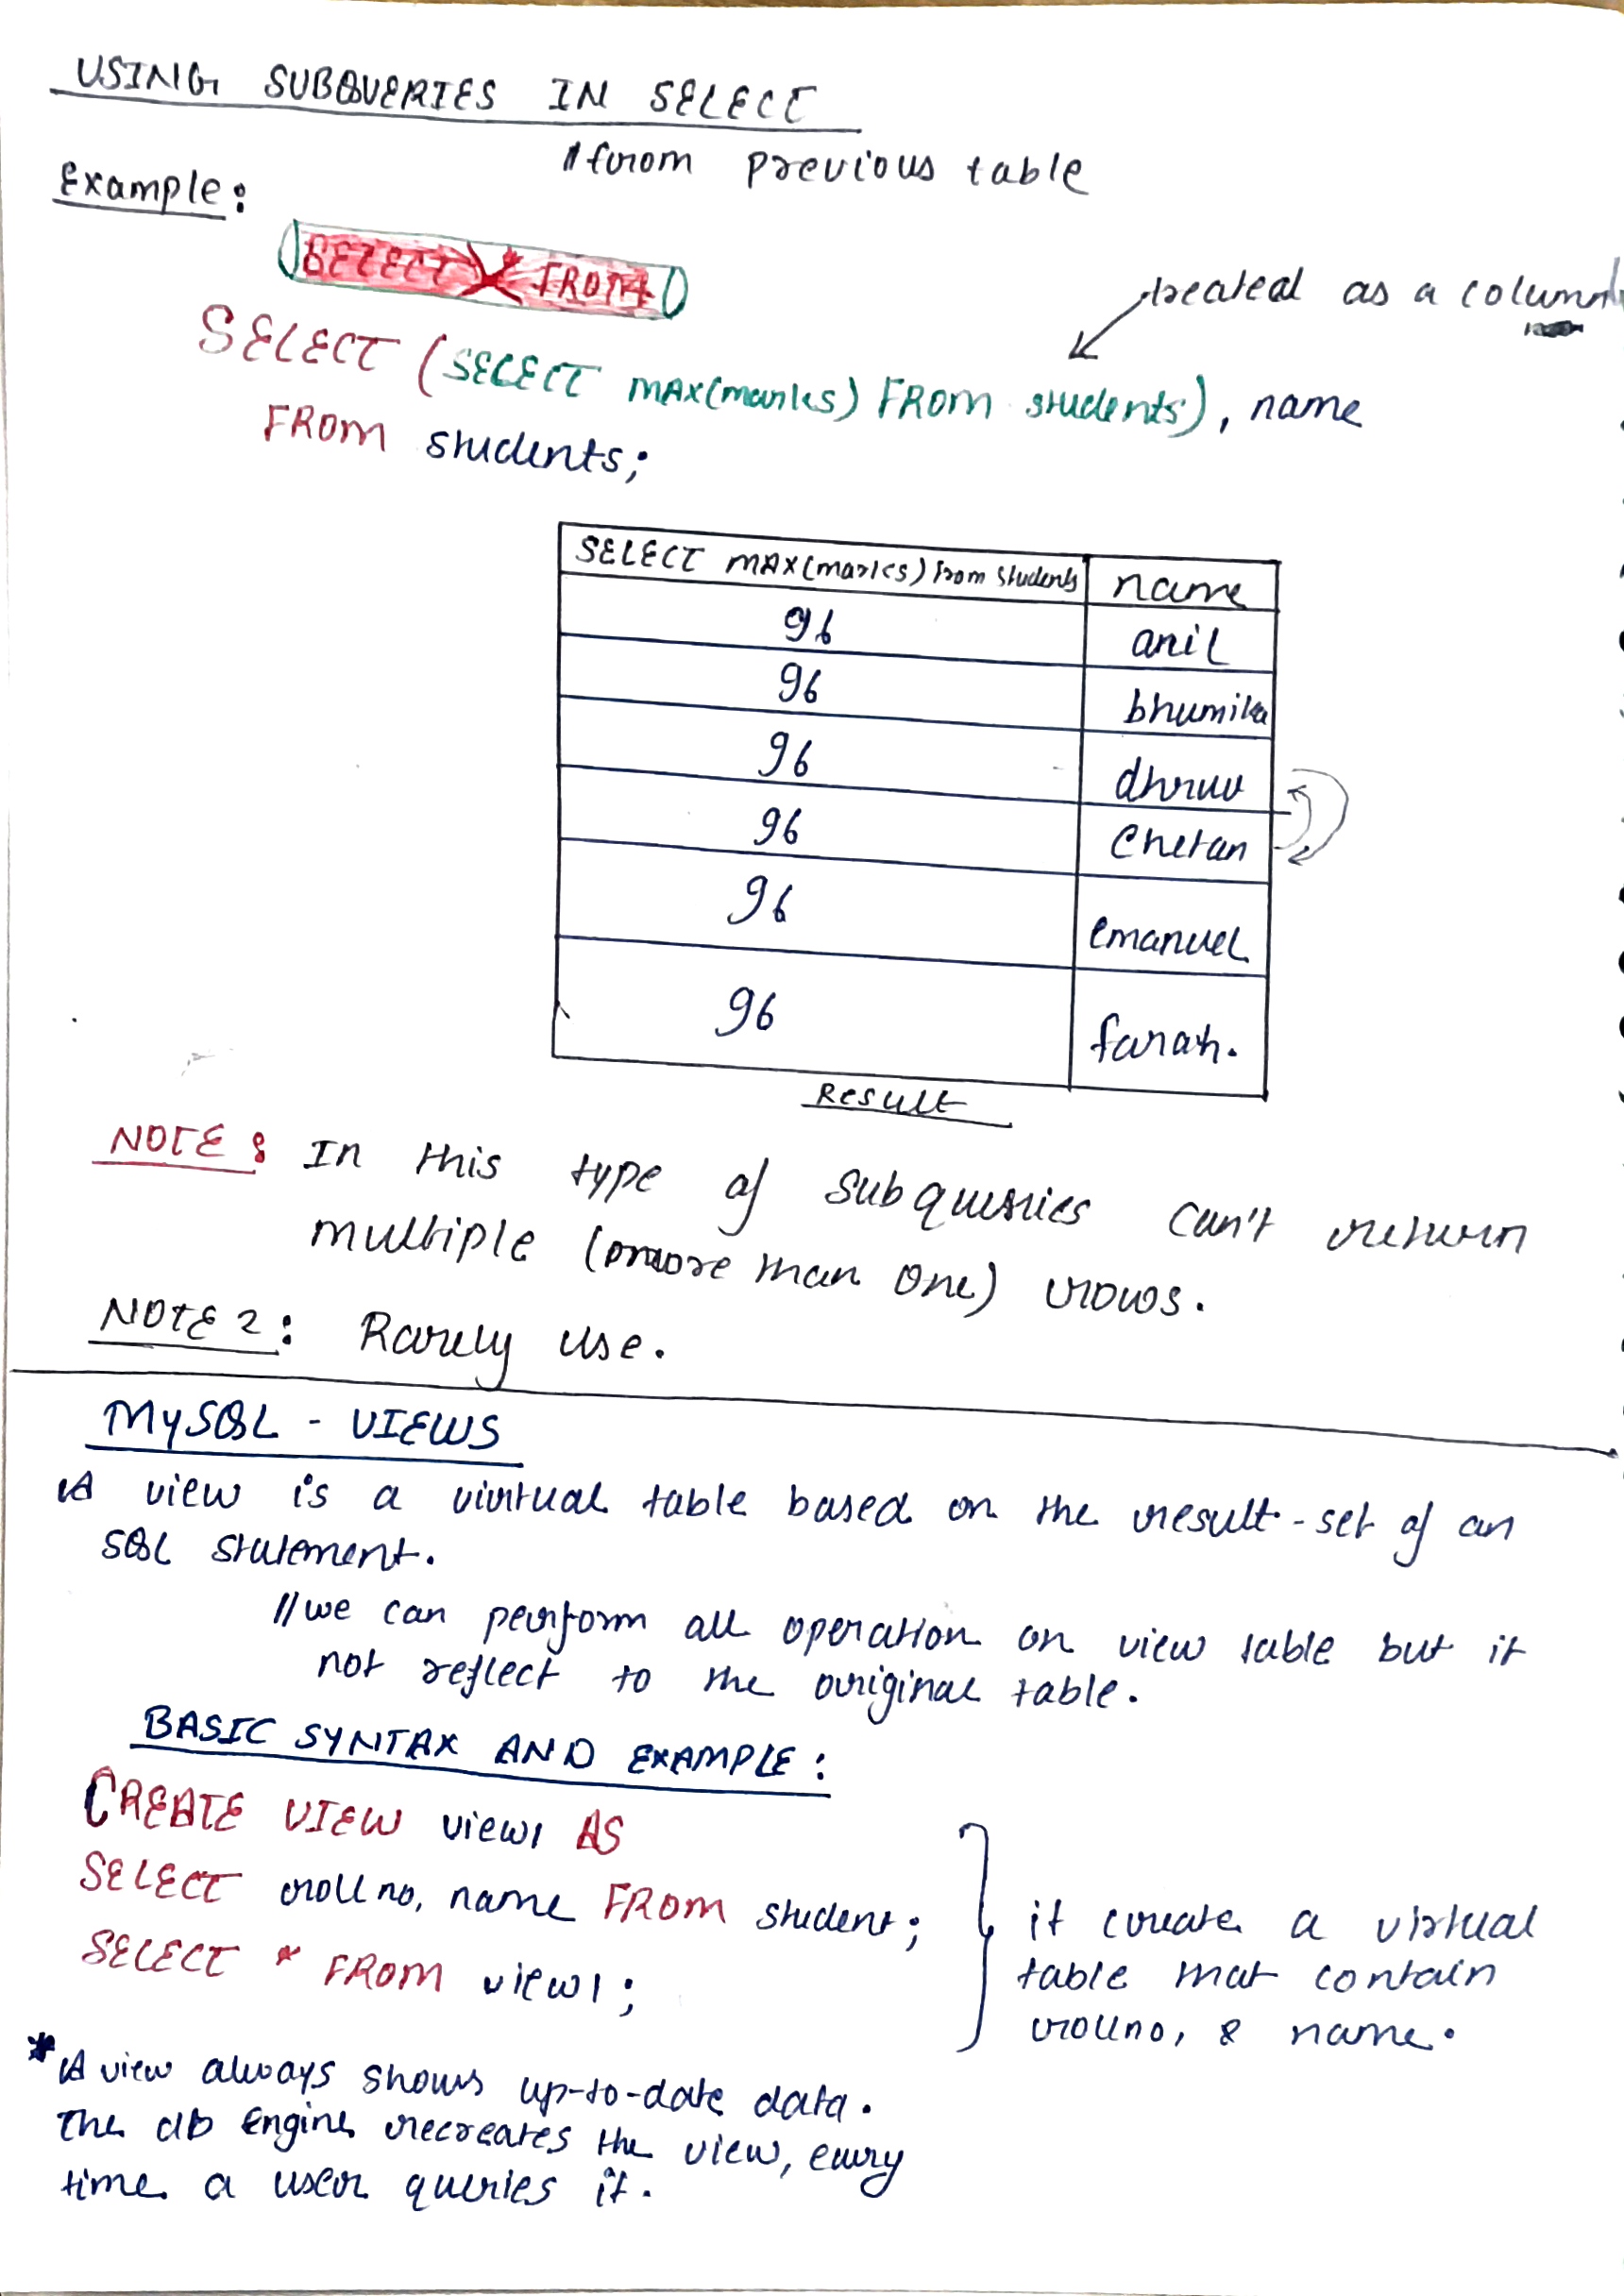 USING SUBQUERIES IN SELECT
// from previous table
Example:
SELECT * FROM
treated as a column
SELECT (SELECT MAX(marks) FROM students), name
FROM students;
SELECT MAX(marks) from students name
96 anil
96 bhumika
96 dhruv
96 Chetan
96 emanuel
96 farah.
Result
NOTE: In this type of subqueries can't return
multiple (more than one) rows.
NOTE 2: Rarely use.
MySQL - VIEWS
A view is a virtual table based on the result-set of an
SQL statement.
// we can perform all operation on view table but it
not reflect to the original table.
BASIC SYNTAX AND EXAMPLE:
CREATE VIEW view1 AS
SELECT rollno, name FROM student;
SELECT * FROM view1;
it create a virtual
table that contain
rollno, & name.
* A view always shows up-to-date data.
The db Engine recreates the view, every
time a user queries it.